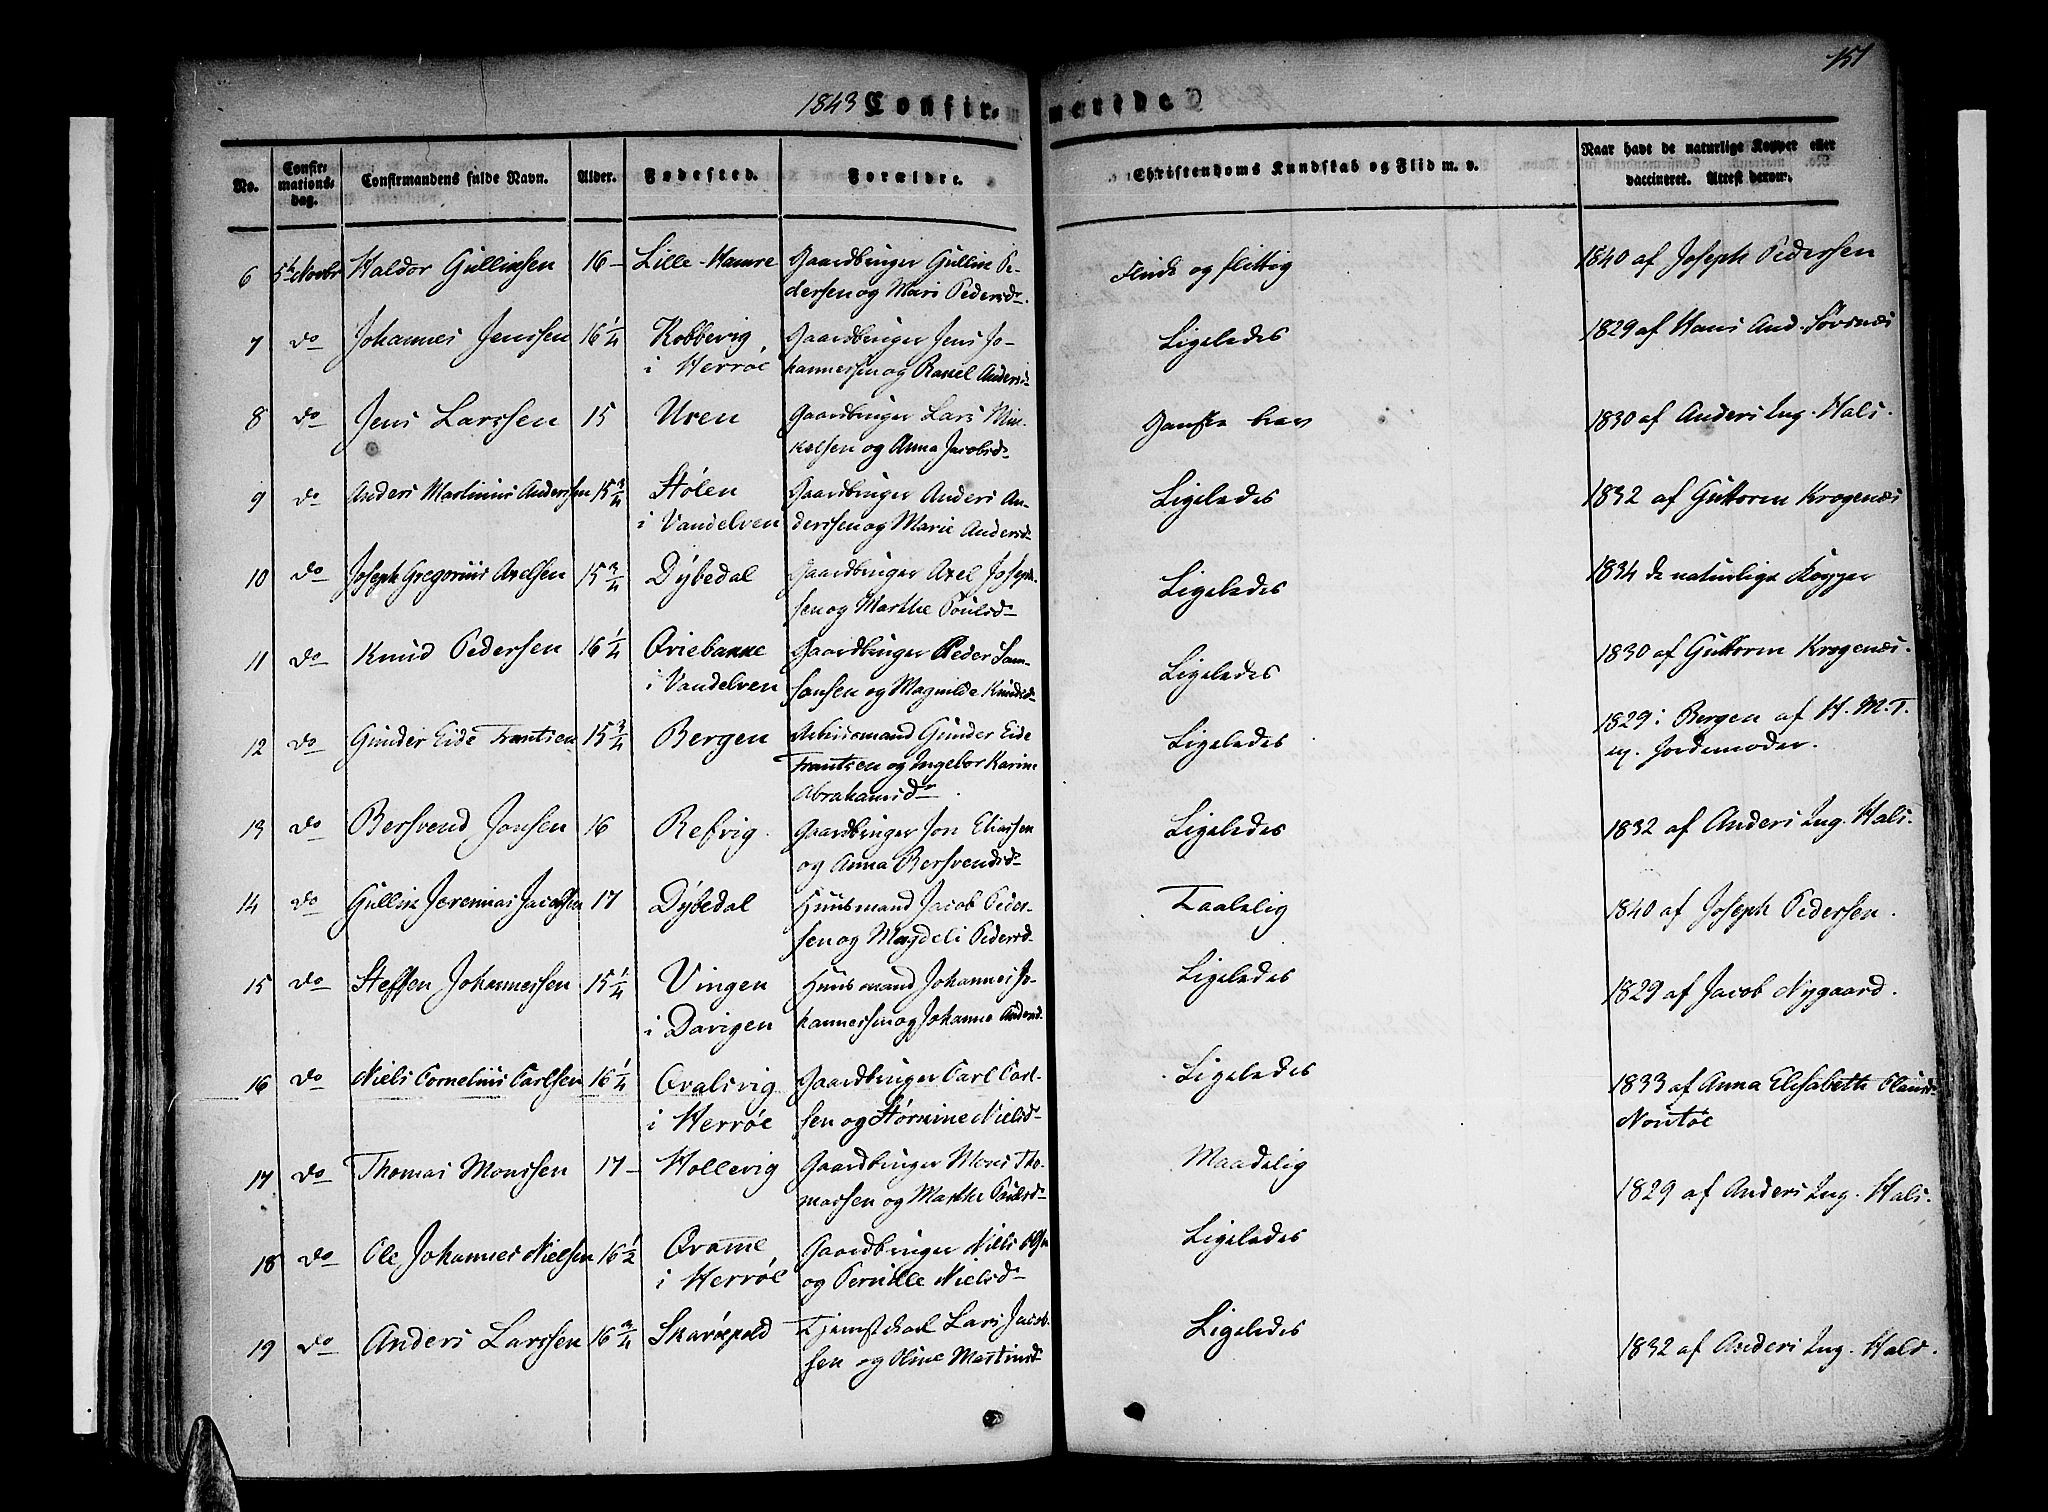 151
1843 Confirmerede
No. Confirmationsdag. Confirmandens fulde Navn. Alder. Fødested. Forældre. Christendoms Kundskab og Flid m. v. Naar havt de naturlige Kopper eller vaccineret. Attest derom.
6 5te Novbr Haldor Gullichsen 16 Lille-Hamre Gaardbruger Gullik Pe- Flink og flittig 1840 af Joseph Pedersen
dersen og Mari Pedersdr.
7 do Johannes Jenssen 16 1/4 Kobbevig, Gaardbruger Jens Jo- Ligeledes 1829 af Hans And. Sørsnæs
i Herröe hannessen og Ranel Andersd.
8 do Jens Larssen 15 Uren Gaardbruger Lars Mik- Ganske brav 1830 af Anders Ing. Hals.
kelsen og Anna Jacobsdr
9 do Anders Martinius Anderssen 15 3/4 Stølen Gaardbruger Anders An- Ligeledes 1832 af Guttorm Krogenæs
i Vandelven derssen og Marie Andersd
10 do Joseph Gregorius Axelsen 15 3/4 Dybedal Gaardbruger Axel Joseph- Ligeledes 1834 de naturlige Kopper
sen og Marthe Poulsdr
11 do Knud Pedersen 16 1/4 Qviebakke Gaardbruger Peder Sam- Ligeledes 1830 af Guttorm Krogenæs.
i Vandelven sonsen og Magnilde Knudsd
12 do Gunder Eide Frantsen 15 3/4 Bergen Arbeidsmand Gunder Eide Ligeledes 1829 i Bergen af H. M. T.
Frantsen og Ingebor Karine ex. Jordemoder.
Abrahamsdr.
13 do Bersvend Jonsen 16 Refvig. Gaardbruger Jon Eliassen Ligeledes 1832 af Anders Ing. Hals.
og Anna Bersvendsdr
14 do Gullik Jeremias Jacobsen 17 Dybedal Huusmand Jacob Peder- Taalelig 1840 af Joseph Pedersen.
sen og Magdeli Pedersd
15 do Steffen Johannessen 15 1/4 Vingen Huusmand Johannes Jo- Ligeledes 1829 af Jacob Nygaard.
i Davigen hannessen og Johanne Andersd.
16 do Niels Cornelius Carlsen 16 1/4 Qvalsvig Gaardbruger Carl Carl- Ligeledes 1833 af Anna Elisabeth Clausd.
i Herröe sen og Nielsdr
17 do Thomas Monssen 17 Hollevig Gaardbruger Mons Tho- Maadelig 1829 af Anders Ing. Hals.
massen og Marthe Poulsdr
18 do Ole Johannes Nielsen 16 1/2 Qvame, Gaardbruger Niels Olsen Ligeledes
i Herröe og Pernille Nielsdr
19 do Anders Larssen 16 3/4 Skaröepold Tjenstekarl Lars Jacob- Ligeledes 1832 af Anders Ing. Hals.
sen og Oline Martinsd